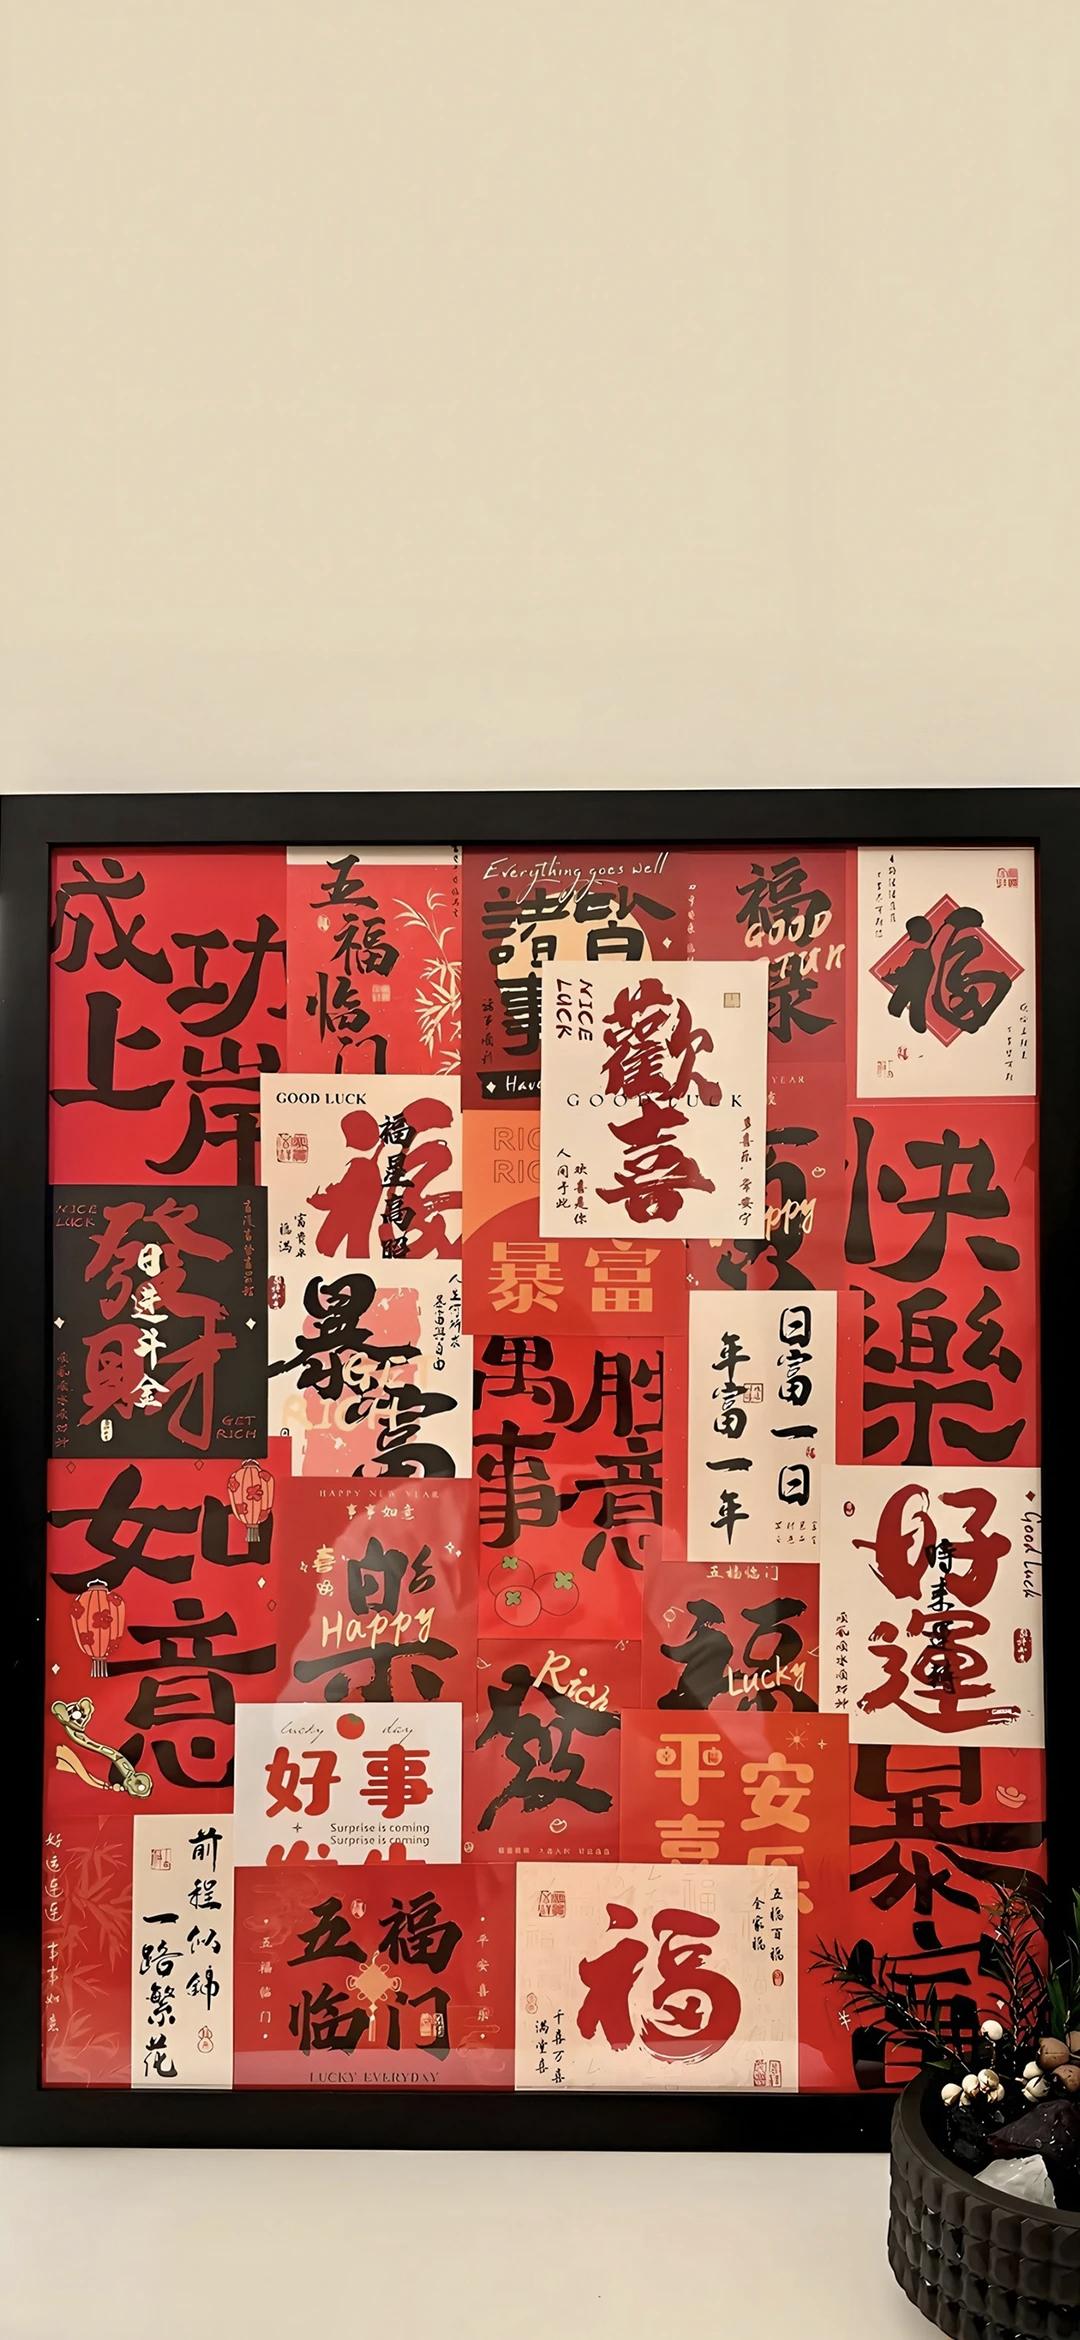 成功
上岸
五福
临门
Everything goes well
諸皆
事
Have
福
GOOD
禄
福
NICE
LUCK
歡
喜
GOOD LUCK
多喜乐·常安宁
欢喜是你
人间于此
GOOD LUCK
福
福星高照
富贵泉
福满
NICE
LUCK
發
財
日进斗金
GET
RICH
RIC
RIC
暴富
YEAR
快
樂
暴
富
GET
RICH
萬事
胜意
日富一日
年富一年
好
運
Good Luck
如
意
HAPPY NEW YEAR
事事如意
樂
Happy
發
Rich
五福临门
福
Lucky
lucky day
好事
Surprise is coming
Surprise is coming
平安
喜乐
暴
富
好运连连 事事如意
前程似锦
一路繁花
五福
临门
五福临门
平安喜乐
LUCKY EVERYDAY
福
五福百福
全家福
千喜万喜
满堂喜